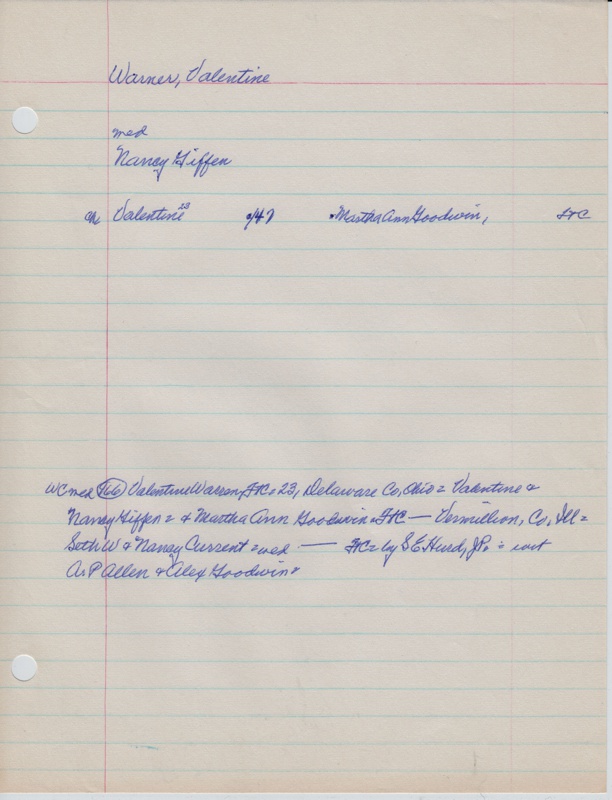 Warner, Valentine
med
Nancy Giffen
ch Valentine 23 /47 Martha Ann Goodwin, FTC
WC med 766 Valentine Warren, FTC = 23, Delaware Co, Ohio = Valentine &
Nancy Giffen = & Martha Ann Goodwin = FTC — Vermillion, Co, Ill =
Seth W & Nancy Current = wed — FTC = by S E Hurd, JP. = wit
A. P Allen & Alex Goodwin =